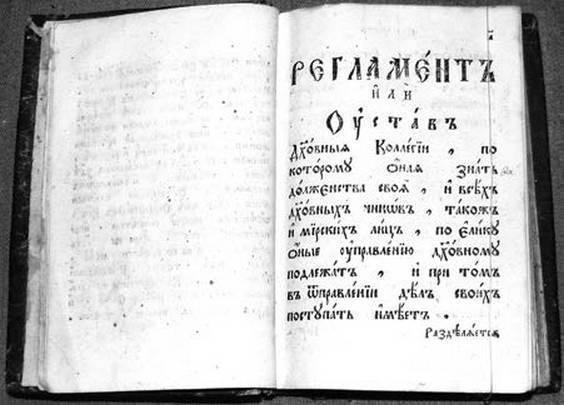 РЕГЛАМЕ́НТЪ
И҆ЛЍ
Оу҆ста́въ
Дꙋхо́вныѧ Коллегїи , по
кото́рому ѻ҆́наѧ зна́ть
до́лженства своѧ̑ , и҆ всѣ́хъ
дꙋхо́вныхъ чинѡ́въ , тако́жъ
и҆ мїрски́хъ ли́цъ , по є҆ли́ку
ѻ҆́ные ᲂу҆правле́нїю дꙋхо́вному
подлежа́тъ , и҆ при то́мъ
въ ѿправле́нїи дѣ́лъ свои́хъ
поступа́ть и҆мѣ́етъ .
Раздѣлѧ́етсѧ